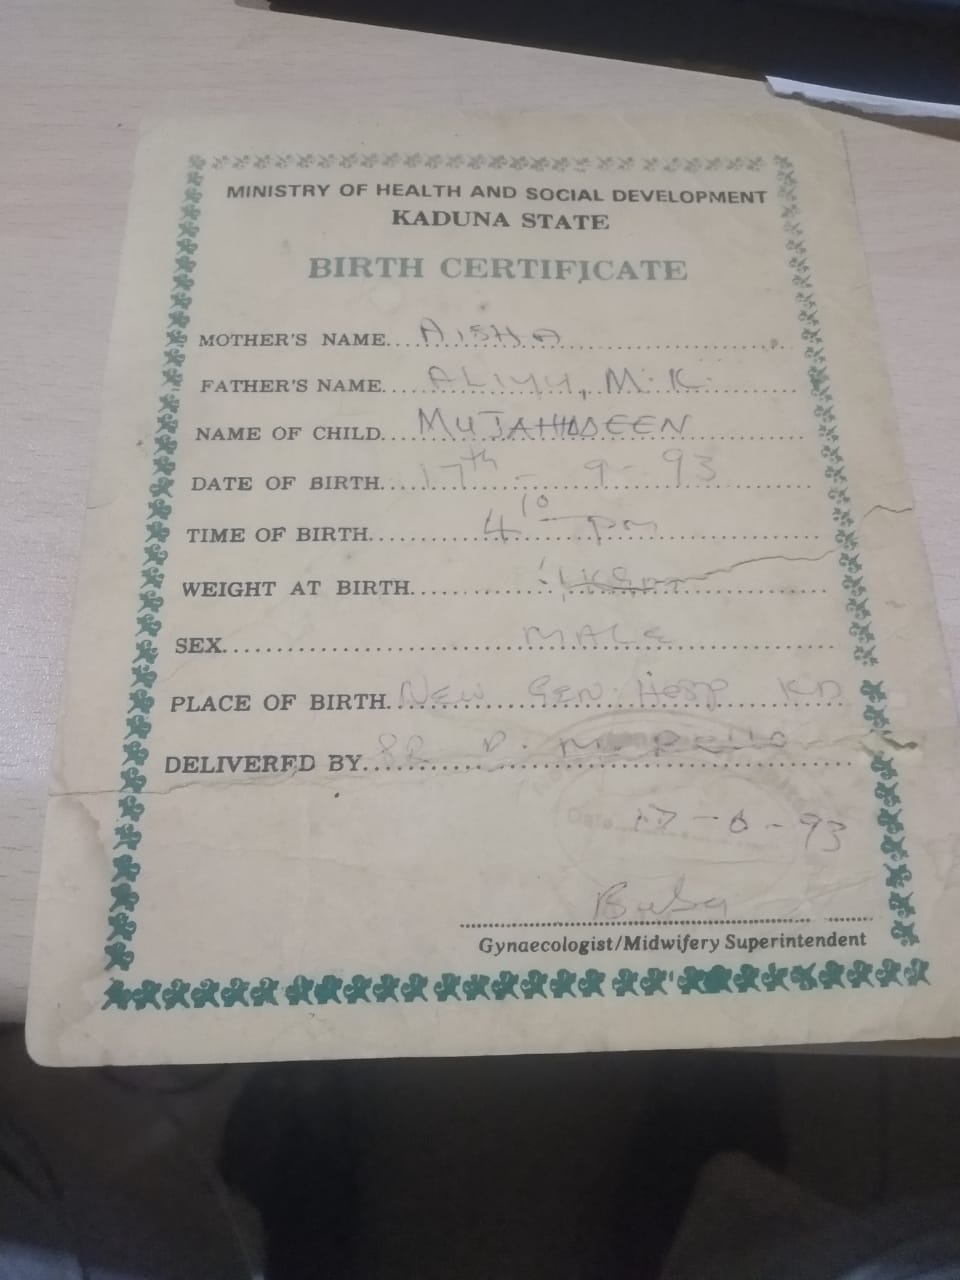 MINISTRY OF HEALTH AND SOCIAL DEVELOPMENT
KADUNA STATE
BIRTH CERTIFICATE
MOTHER'S NAME....AISHA
FATHER'S NAME....ALIYU, M.K.
NAME OF CHILD....MUJAHIDEEN
DATE OF BIRTH....17th - 9 - 93
TIME OF BIRTH....4 10 pm
WEIGHT AT BIRTH....
SEX....MALE
PLACE OF BIRTH....NEW GEN. HOSP KD
DELIVERED BY....
Date 17 - - 93
Gynaecologist/Midwifery Superintendent